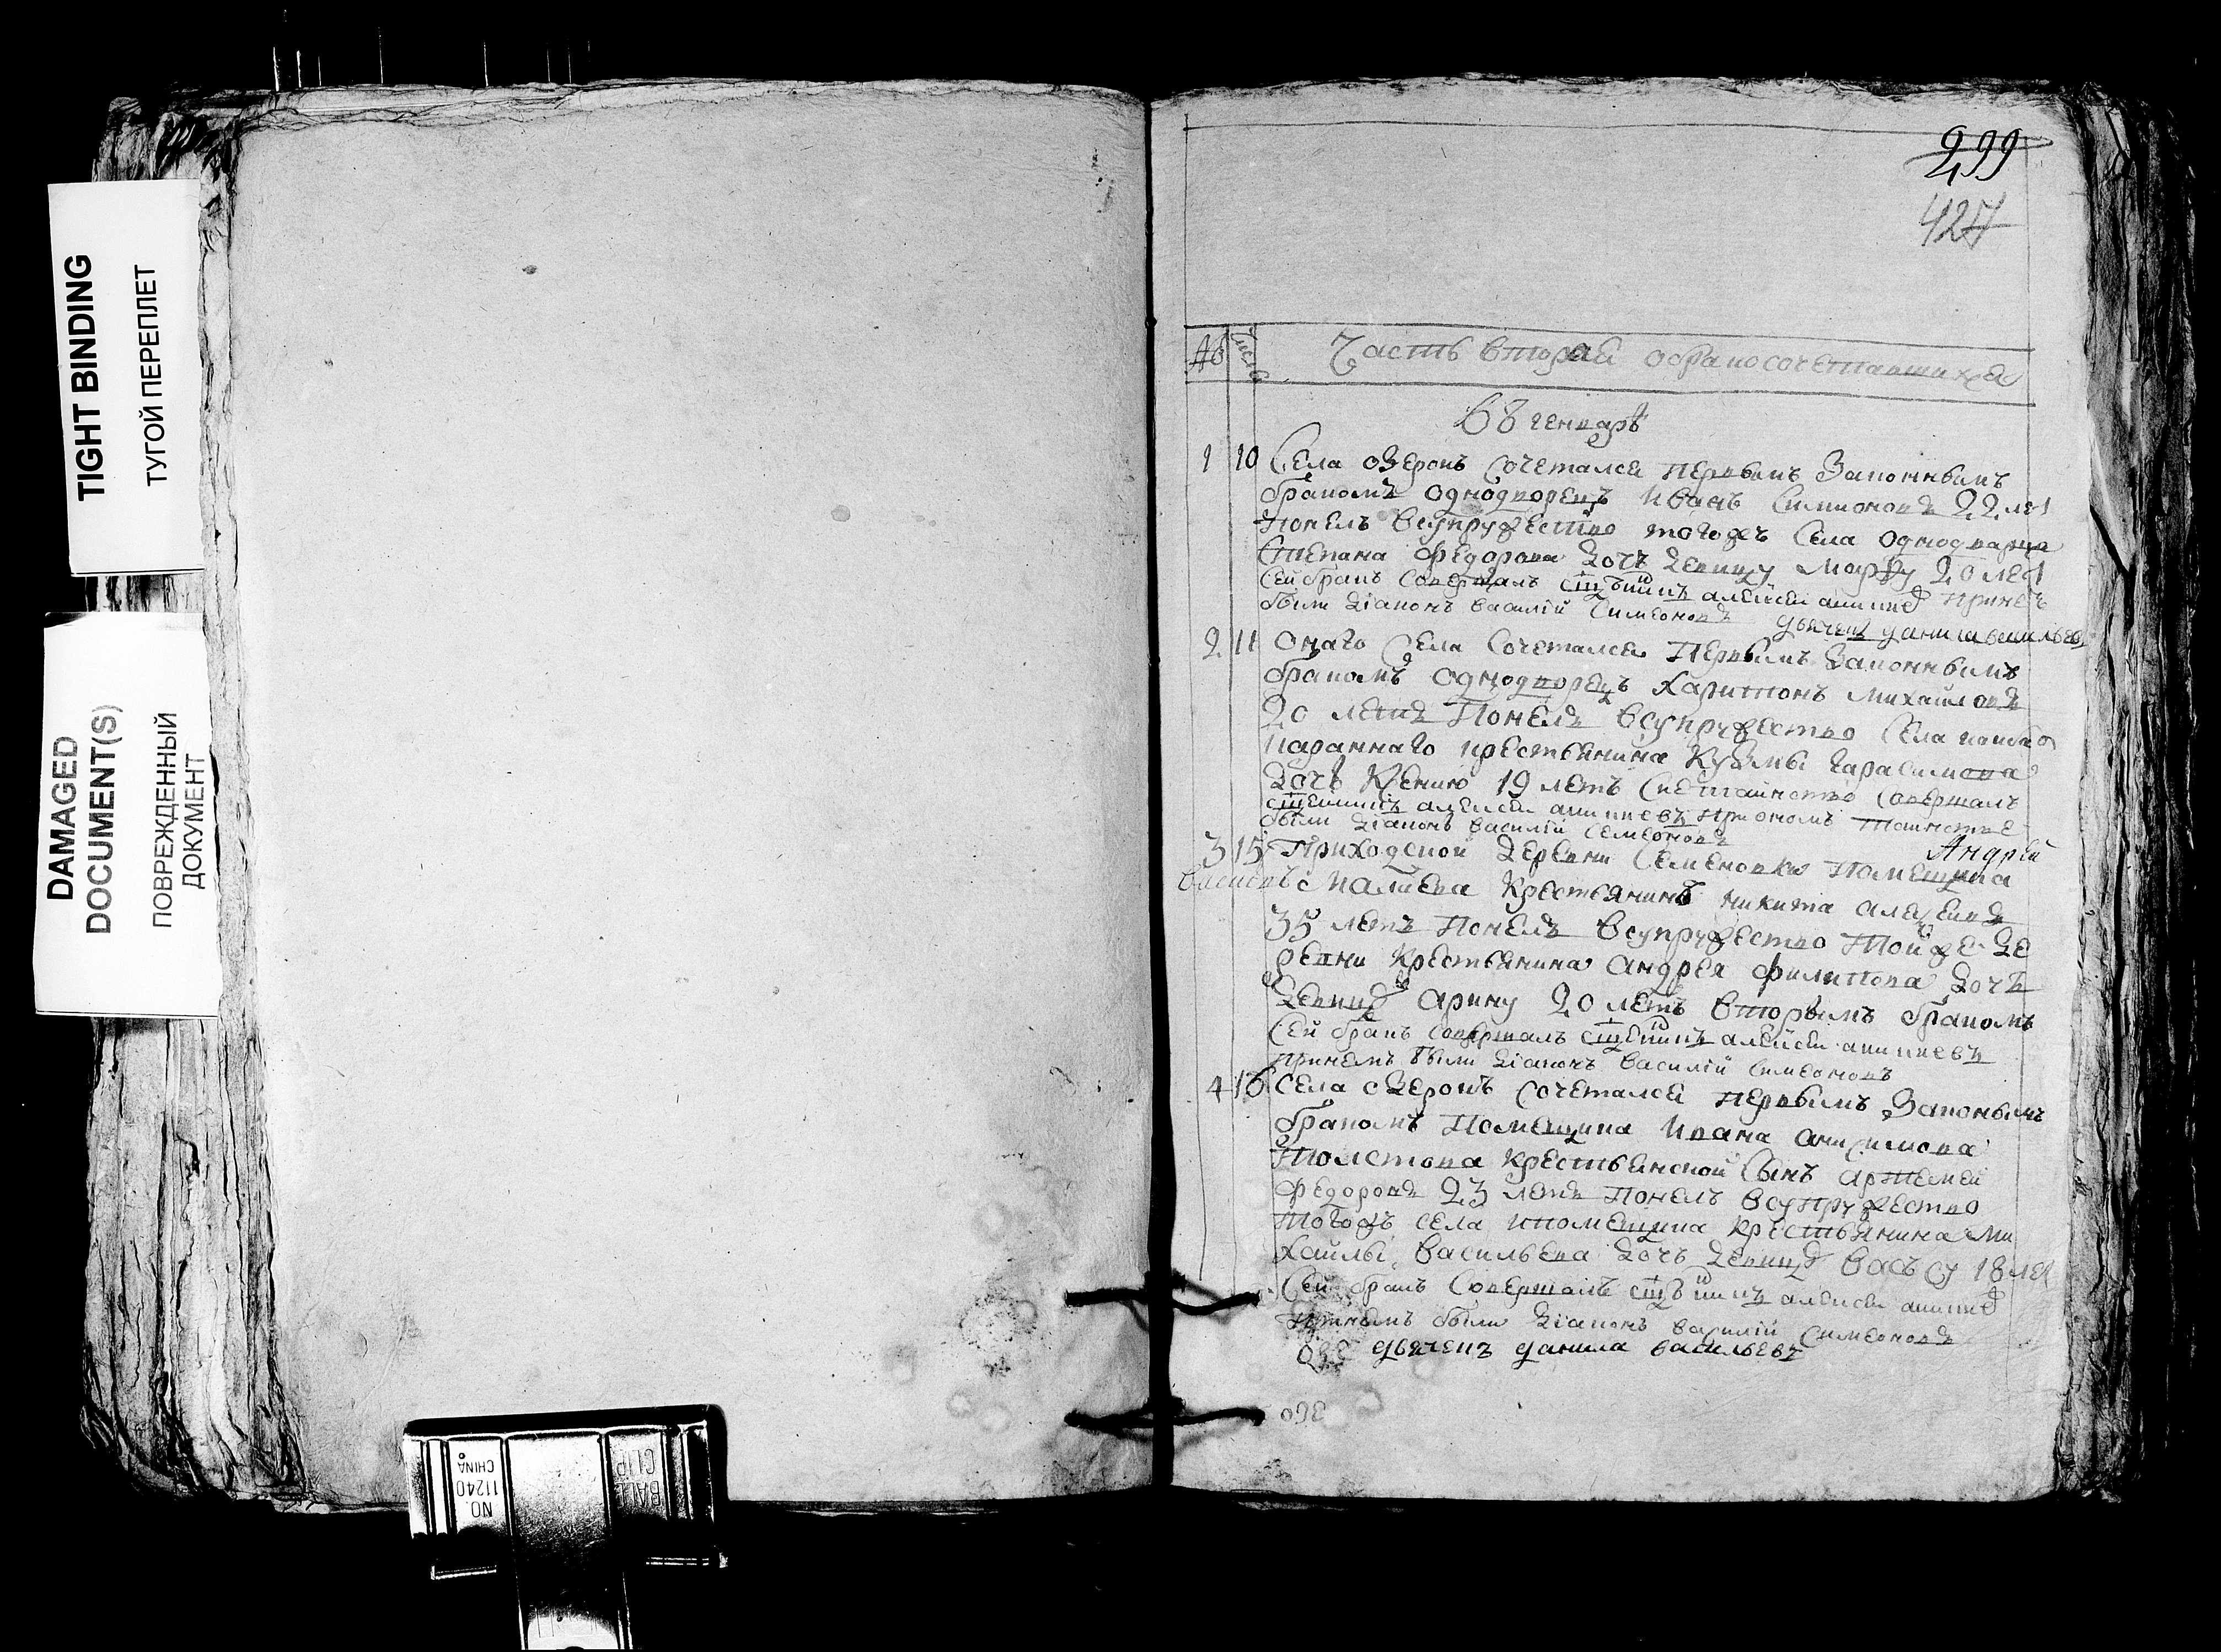 TIGHT BINDING
ТУГОЙ ПЕРЕПЛЕТ
DAMAGED
DOCUMENT(S)
ПОВРЕЖДЕННЫЙ
ДОКУМЕНТ
NO.
11240
CHINA
299
427
№ Число Часть вторая о бракосочетавшихся
въ генваре
1 10 Села озерокъ сочетался первымъ законнымъ
бракомъ однодворецъ Иванъ Симионовъ 22 лет
понелъ всупружество тогожъ села однодварца
Степана Федорова дочь девицу Марфу 20 лет
Сей бракъ совершалъ сщ҃енникъ алексеи принем
были діаконъ василій Симеоновъ дьячекъ данила васильев
2 11 Онаго села сочетался первымъ законнымъ
бракомъ однодворецъ Харитонъ Михаиловъ
20 летъ понелъ всупружество села
крестьянина Кузмы Гарасимова
дочь Ксению 19 летъ сие таинство совершалъ
сщ҃енникъ алексеи приономъ таинстве
были діаконъ василій Семеоновъ
3 15 Приходской деревни Семеновки помещика Андрей
васильевъ крестьянинъ никита алексеевъ
35 летъ понелъ всупружество тойже де
ревни крестьянина андрея филипова дочь
девицу арину 20 летъ вторымъ бракомъ
Сей бракъ совершалъ сщ҃енникъ алексеи
принемъ были діаконъ василій Симеоновъ
4 16 Села озерокъ сочетался первымъ законымъ
бракомъ помещика Ивана анисимова
Толстова крестьянской сынъ артемей
федоровъ 23 летъ понелъ всупружество
тогожъ села ипомещика крестьянина Ми
хаилы васильева дочь девицу Васъсу 18 ле
Сей бракъ совершалъ сщ҃енникъ алексеи
принемъ были діаконъ василий Симеоновъ
дьячекъ данила васильевъ